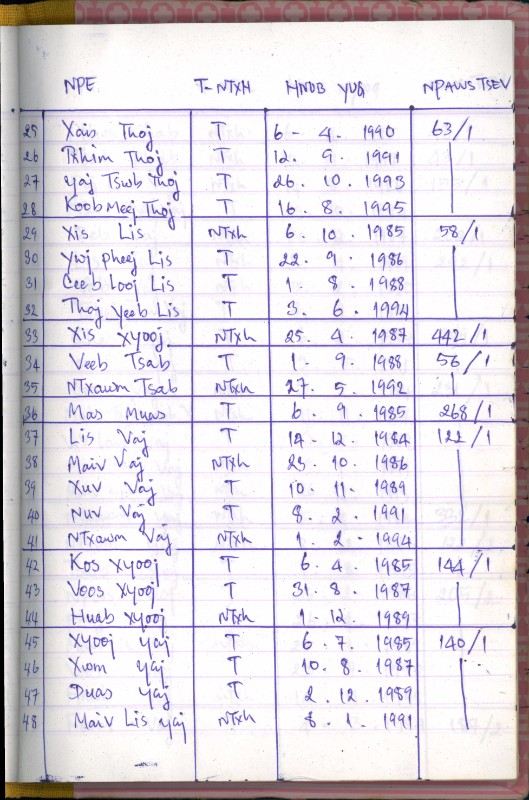 NPE T-NTXH HNUB YUG NPAWS TSEV
25 Xais Thoj T 6 - 4. 1990 63/1
26 Phim Thoj T 12. 9. 1991
27 Yaj Tswb Thoj T 26. 10. 1993
28 Koob Meej Thoj T 16. 8. 1995
29 Xis Lis NTxh 6. 10. 1985 58/1
30 Ywj pheej Lis T 22. 9. 1986
31 Ceeb looj Lis T 1. 8. 1988
32 Thoj yeeb Lis T 3. 6. 1994
33 Xis Xyooj NTxh 25. 4. 1987 442/1
34 Veeb Tsab T 1. 9. 1988 56/1
35 NTxawm Tsab NTxh 27. 5. 1992
36 Mas Muas T 6. 9. 1985 268/1
37 Lis Vaj T 14 - 12. 1984 122/1
38 Maiv Vaj NTxh 23. 10. 1986
39 Xuv Vaj T 10. 11. 1989
40 Nuv Vaj T 8. 2. 1991
41 NTxawm Vaj NTxh 1. 2. 1994
42 Kos Xyooj T 6. 4. 1985 144/1
43 Voos Xyooj T 31. 8. 1987
44 Huab Xyooj NTxh 1. 12. 1989
45 Xyooj yaj T 6. 7. 1985 140/1
46 Xwm yaj T 10. 8. 1987
47 Duas yaj T 2. 12. 1989
48 Maiv Lis yaj NTxh 8. 1. 1991